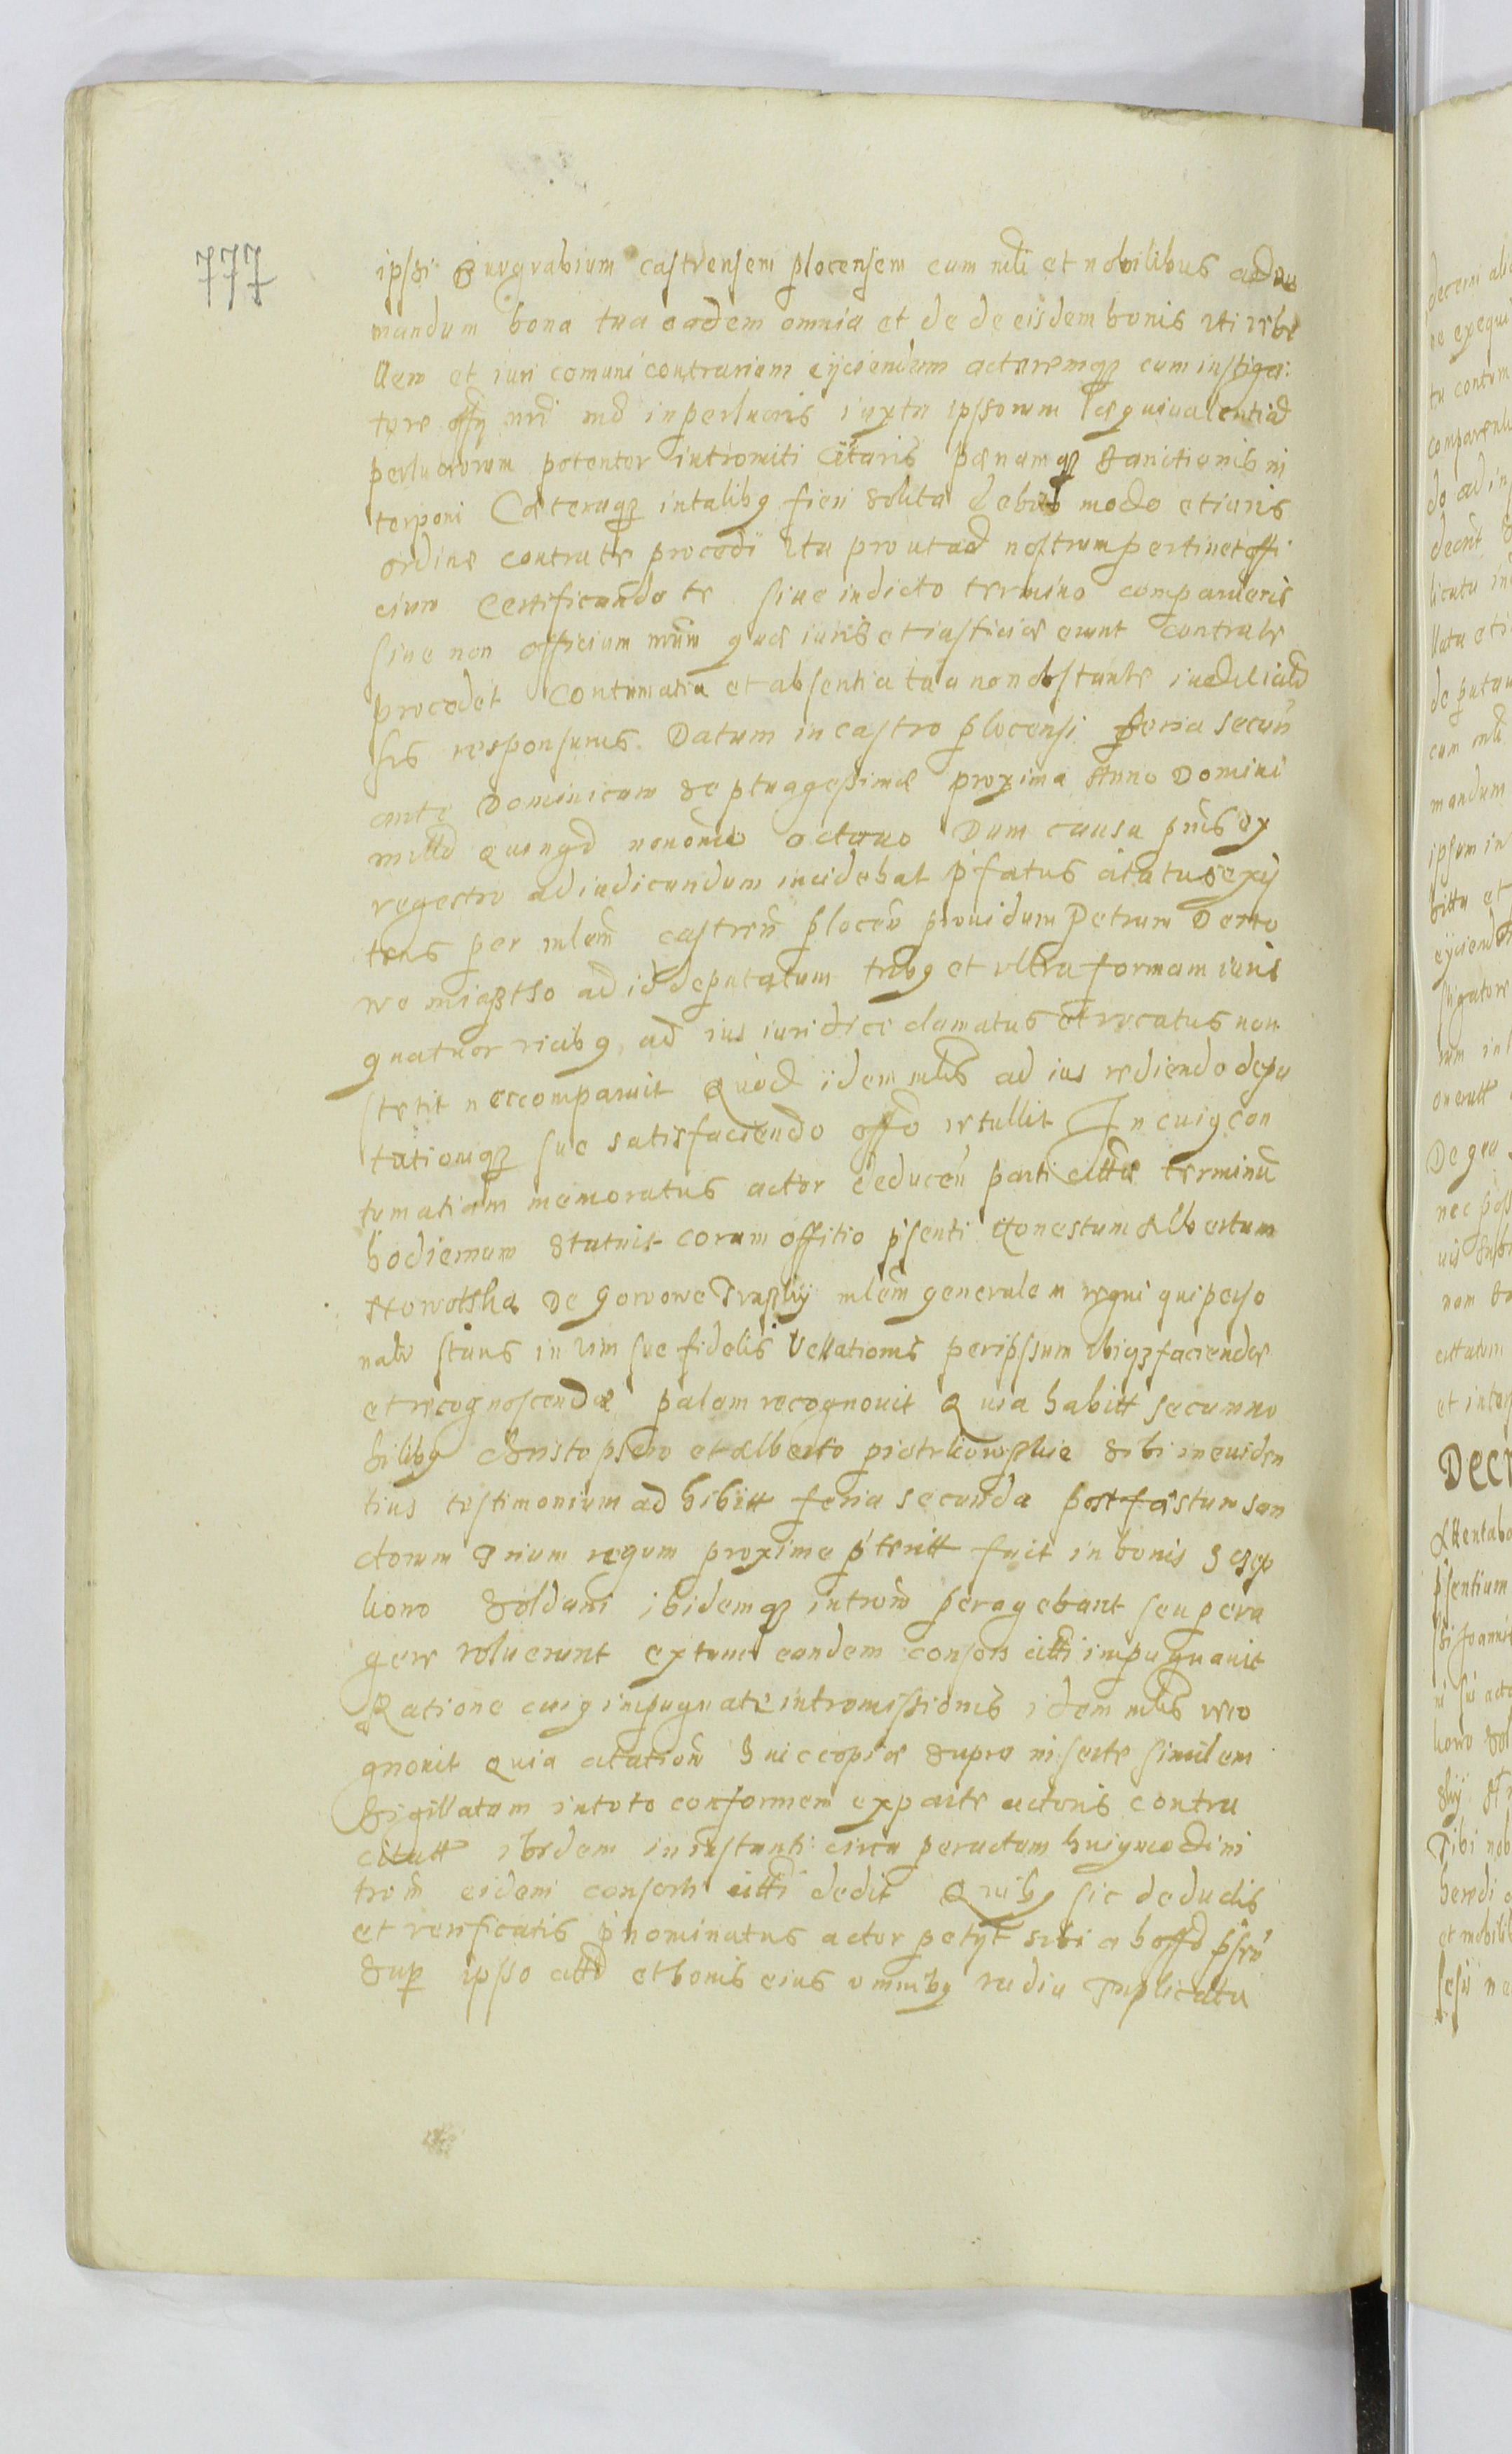 777
ipssi Burgrabium castrensem plocensem cum mli et nobilibus ad
mandum bona tua eadem omnia et de de eisdem bonis uti rebe
llem et iuri comuni contrariem eijciendum actoremq3 cum instiga:
tore offy nri in perlucris iuxta ipssorum aequiualentiad
perlucrorum potenter intromiti citaris paenamq3 sanctionis in
terponi Caeteraq3 in talibg fieri solita debito modo et iuris
ordine contra te procedi Ita prout ad nostrum pertinet offi
cium Certificando te siue in dicto termino comparueris
siue non officium nrum quae iuris et iusticiae erunt contra te
procedet Contumatia et absentia tua non obstante iudiciald
sis responsurus. Datum in castro plocensi feria secun
ante Dominicam septuagessimae proxima Anno Domini
milld quingd nonomo octauo Dum causa pns ex
regestro ad iudicandum incidebat pfatus citatus exis
tens per mlem castren plocen prouidum Petrum Derto
wo miastho ad id deputatum tribg et ultra formam iuris
quatuor vicibg ad ius iuridice clamatus et vocatus non
stetit nec comparuit Quod idem mlis ad ius rediendo depu
tationiq3 sue satisfaciendo offo retullit In cuig con
tumatiam memoratus actor deducen parti cittae terminu
hodiernum statuit coram offitio psenti Honestum Albertum
de Gowowe mlem generalem regni qui perso
nalr stans in vim sue fidelis rellationis per ipssum ibiq3 faciendae
et recognoscendae palam recognouit Quia habitt secum no
bilibg Christopsero et Alberto piotrkowskie sibi in euiden
tius testimonium adhibitt feria secunda post festum san
ctorum Trium regum proxime pteritt fuit in bonis
kono Soldani ibidemq3 introm peragebant seu pera
gere voluerunt extunc eandem consors citti impugnauit
Ratione cuig impugnate intromissionis idem mlis reco
gnouit Quia citation huic copiae supra inserte similem
Sigillatam in toto conformem ex parte actoris contra
citatt ibidem in instanti circa peractam huigmodi in
trom eidem consorti citti dedit Quibg sic deductis
et verificatis pnominatus actor petyt sibi ab offo psen
Sup ipso citto et bonis eius omnibg vadia Triplicata